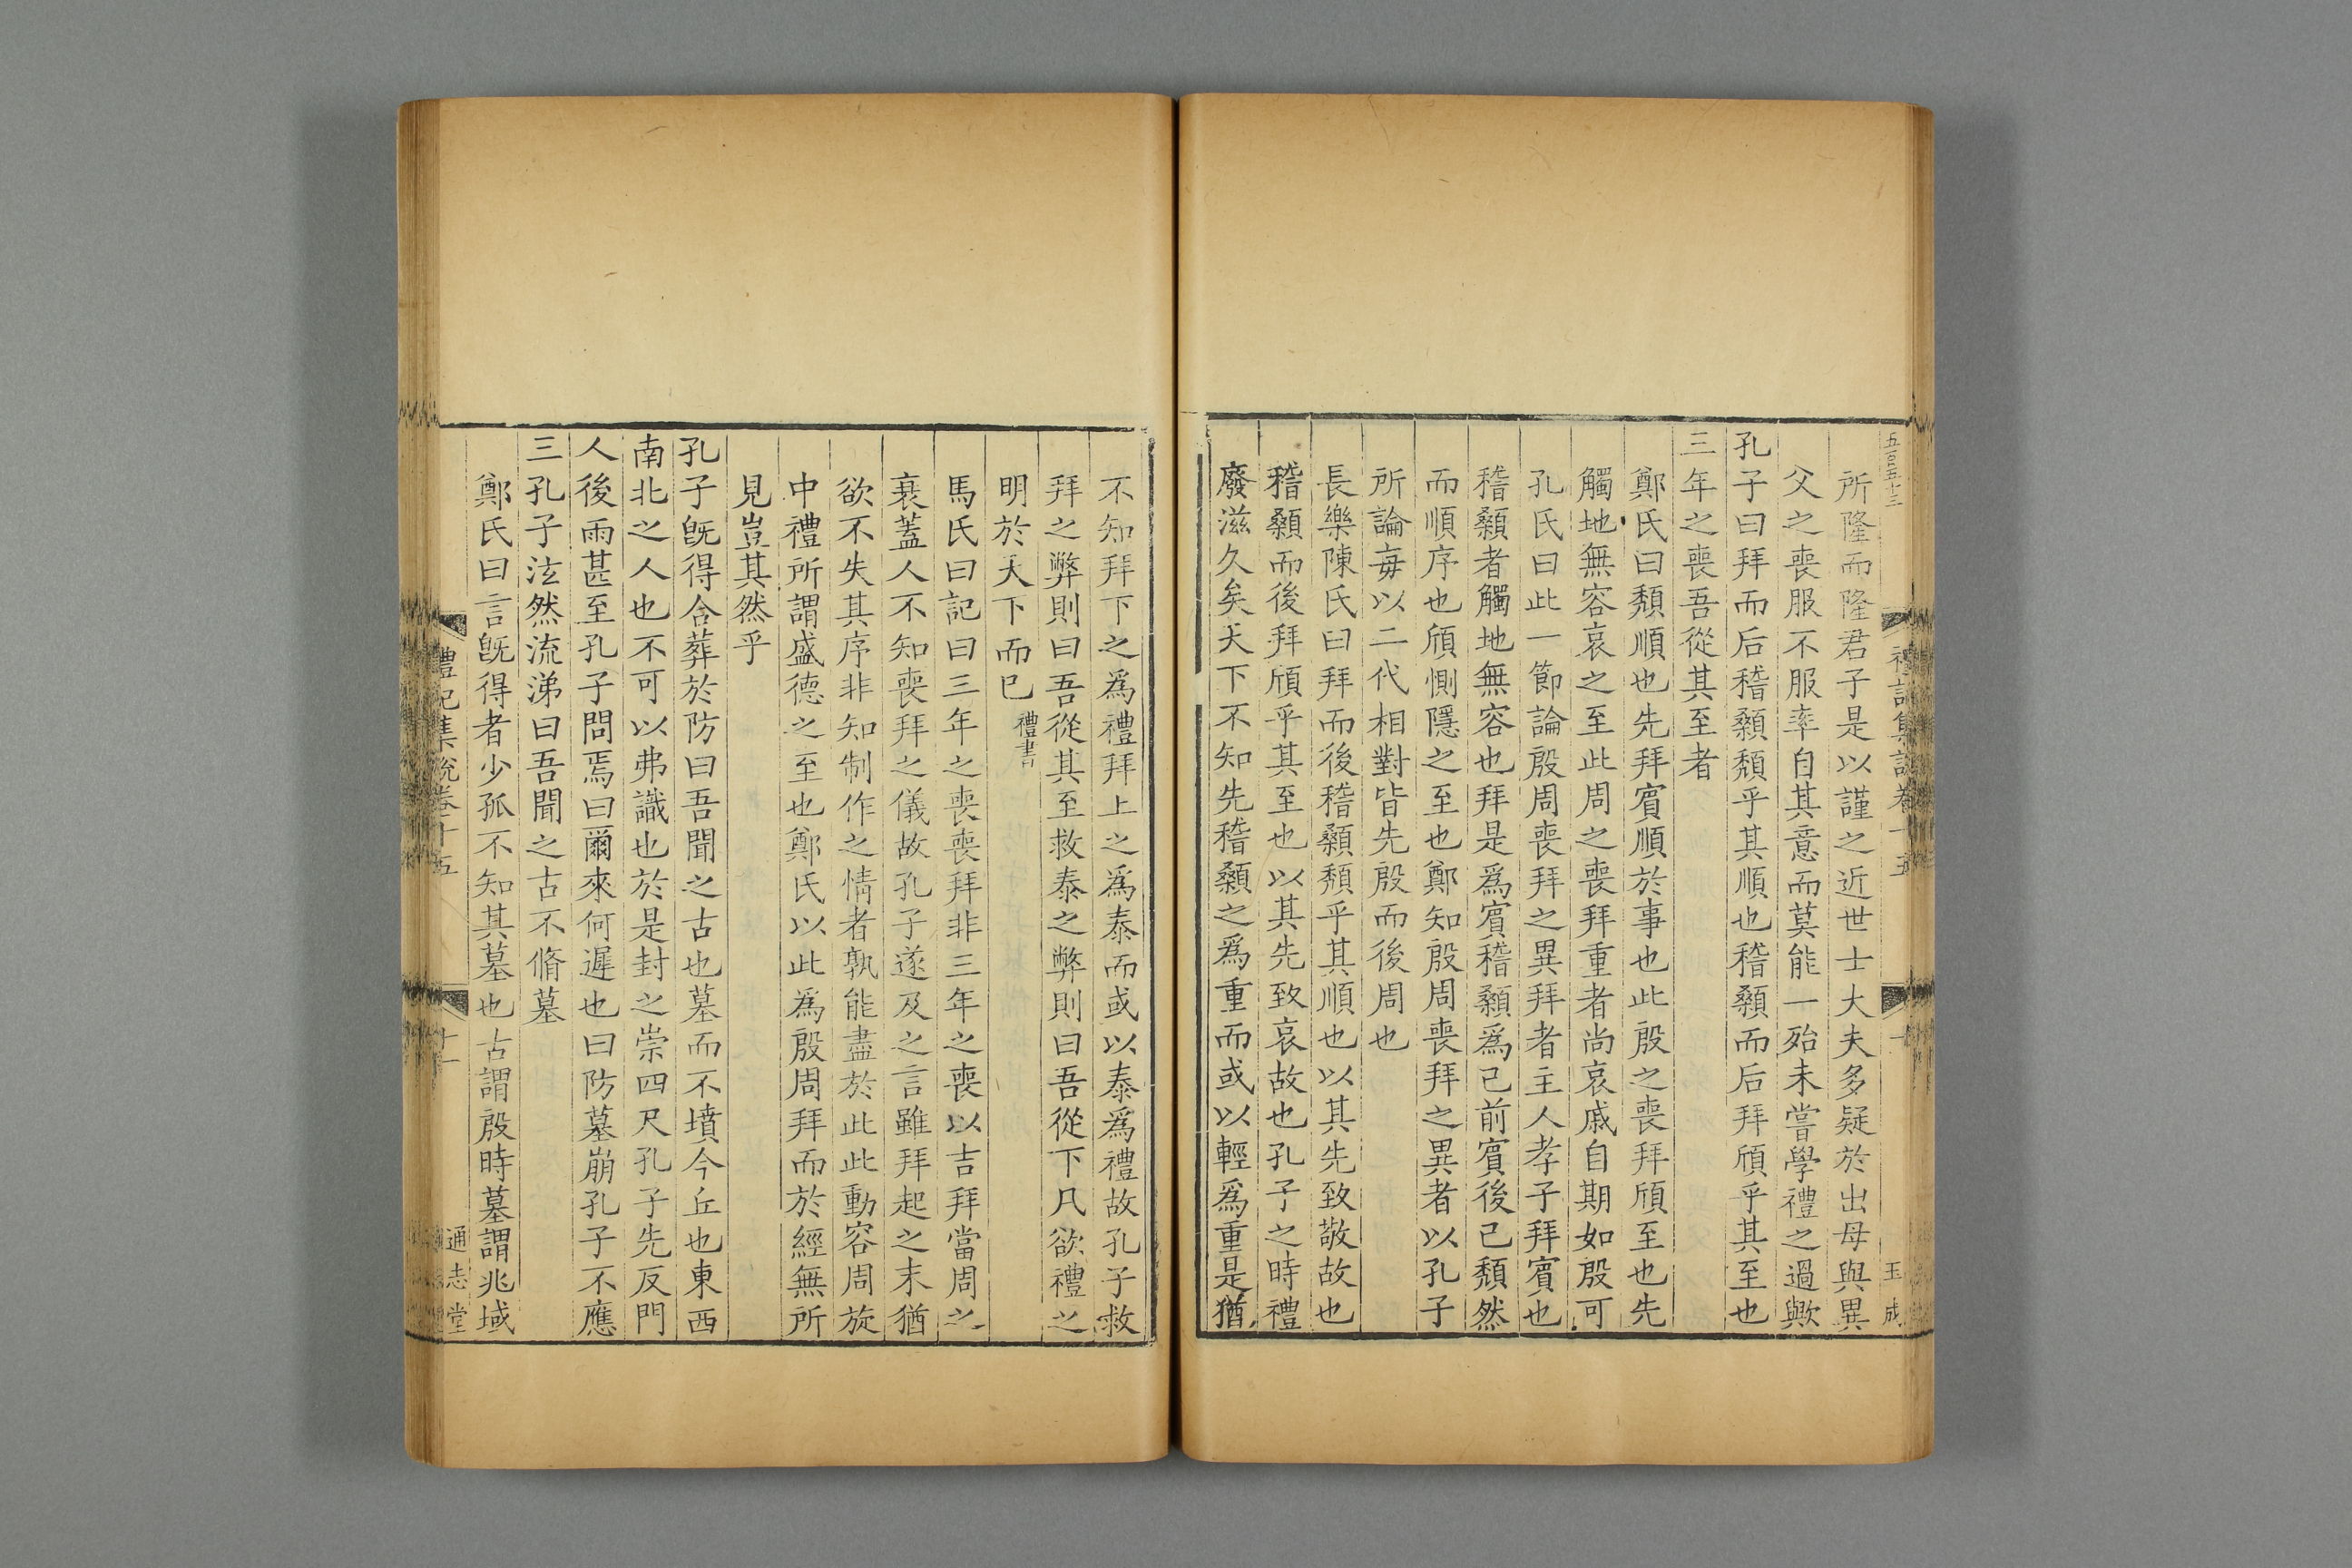 五百五十三
禮記集說卷十五
十
玉成
所隆而隆君子是以謹之近世士大夫多疑於出母與異
父之喪服不服率自其意而莫能一殆未嘗學禮之過歟
孔子曰拜而后稽顙頽乎其順也稽顙而后拜頎乎其至也
三年之喪吾從其至者
鄭氏曰頽順也先拜賓順於事也此殷之喪拜頎至也先
觸地無容哀之至此周之喪拜重者尚哀戚自期如殷可
孔氏曰此一節論殷周喪拜之異拜者主人孝子拜賓也
稽顙者觸地無容也拜是爲賓稽顙爲己前賓後己頽然
而順序也頎惻隱之至也鄭知殷周喪拜之異者以孔子
所論每以二代相對皆先殷而後周也
長樂陳氏曰拜而後稽顙頽乎其順也以其先致敬故也
稽顙而後拜頎乎其至也以其先致哀故也孔子之時禮
廢滋久矣天下不知先稽顙之爲重而或以輕爲重是猶
不知拜下之爲禮拜上之爲泰而或以泰爲禮故孔子救
拜之弊則曰吾從其至救泰之弊則曰吾從下凡欲禮之
明於天下而已禮書
馬氏曰記曰三年之喪喪拜非三年之喪以吉拜當周之
衰蓋人不知喪拜之儀故孔子遂及之言雖拜起之末猶
欲不失其序非知制作之情者孰能盡於此此動容周旋
中禮所謂盛德之至也鄭氏以此爲殷周拜而於經無所
見豈其然乎
孔子旣得合葬於防曰吾聞之古也墓而不墳今丘也東西
南北之人也不可以弗識也於是封之崇四尺孔子先反門
人後雨甚至孔子問焉曰爾來何遲也曰防墓崩孔子不應
三孔子泫然流涕曰吾聞之古不脩墓
鄭氏曰言旣得者少孤不知其墓也古謂殷時墓謂兆域
禮記集說卷十五
十一
通志堂